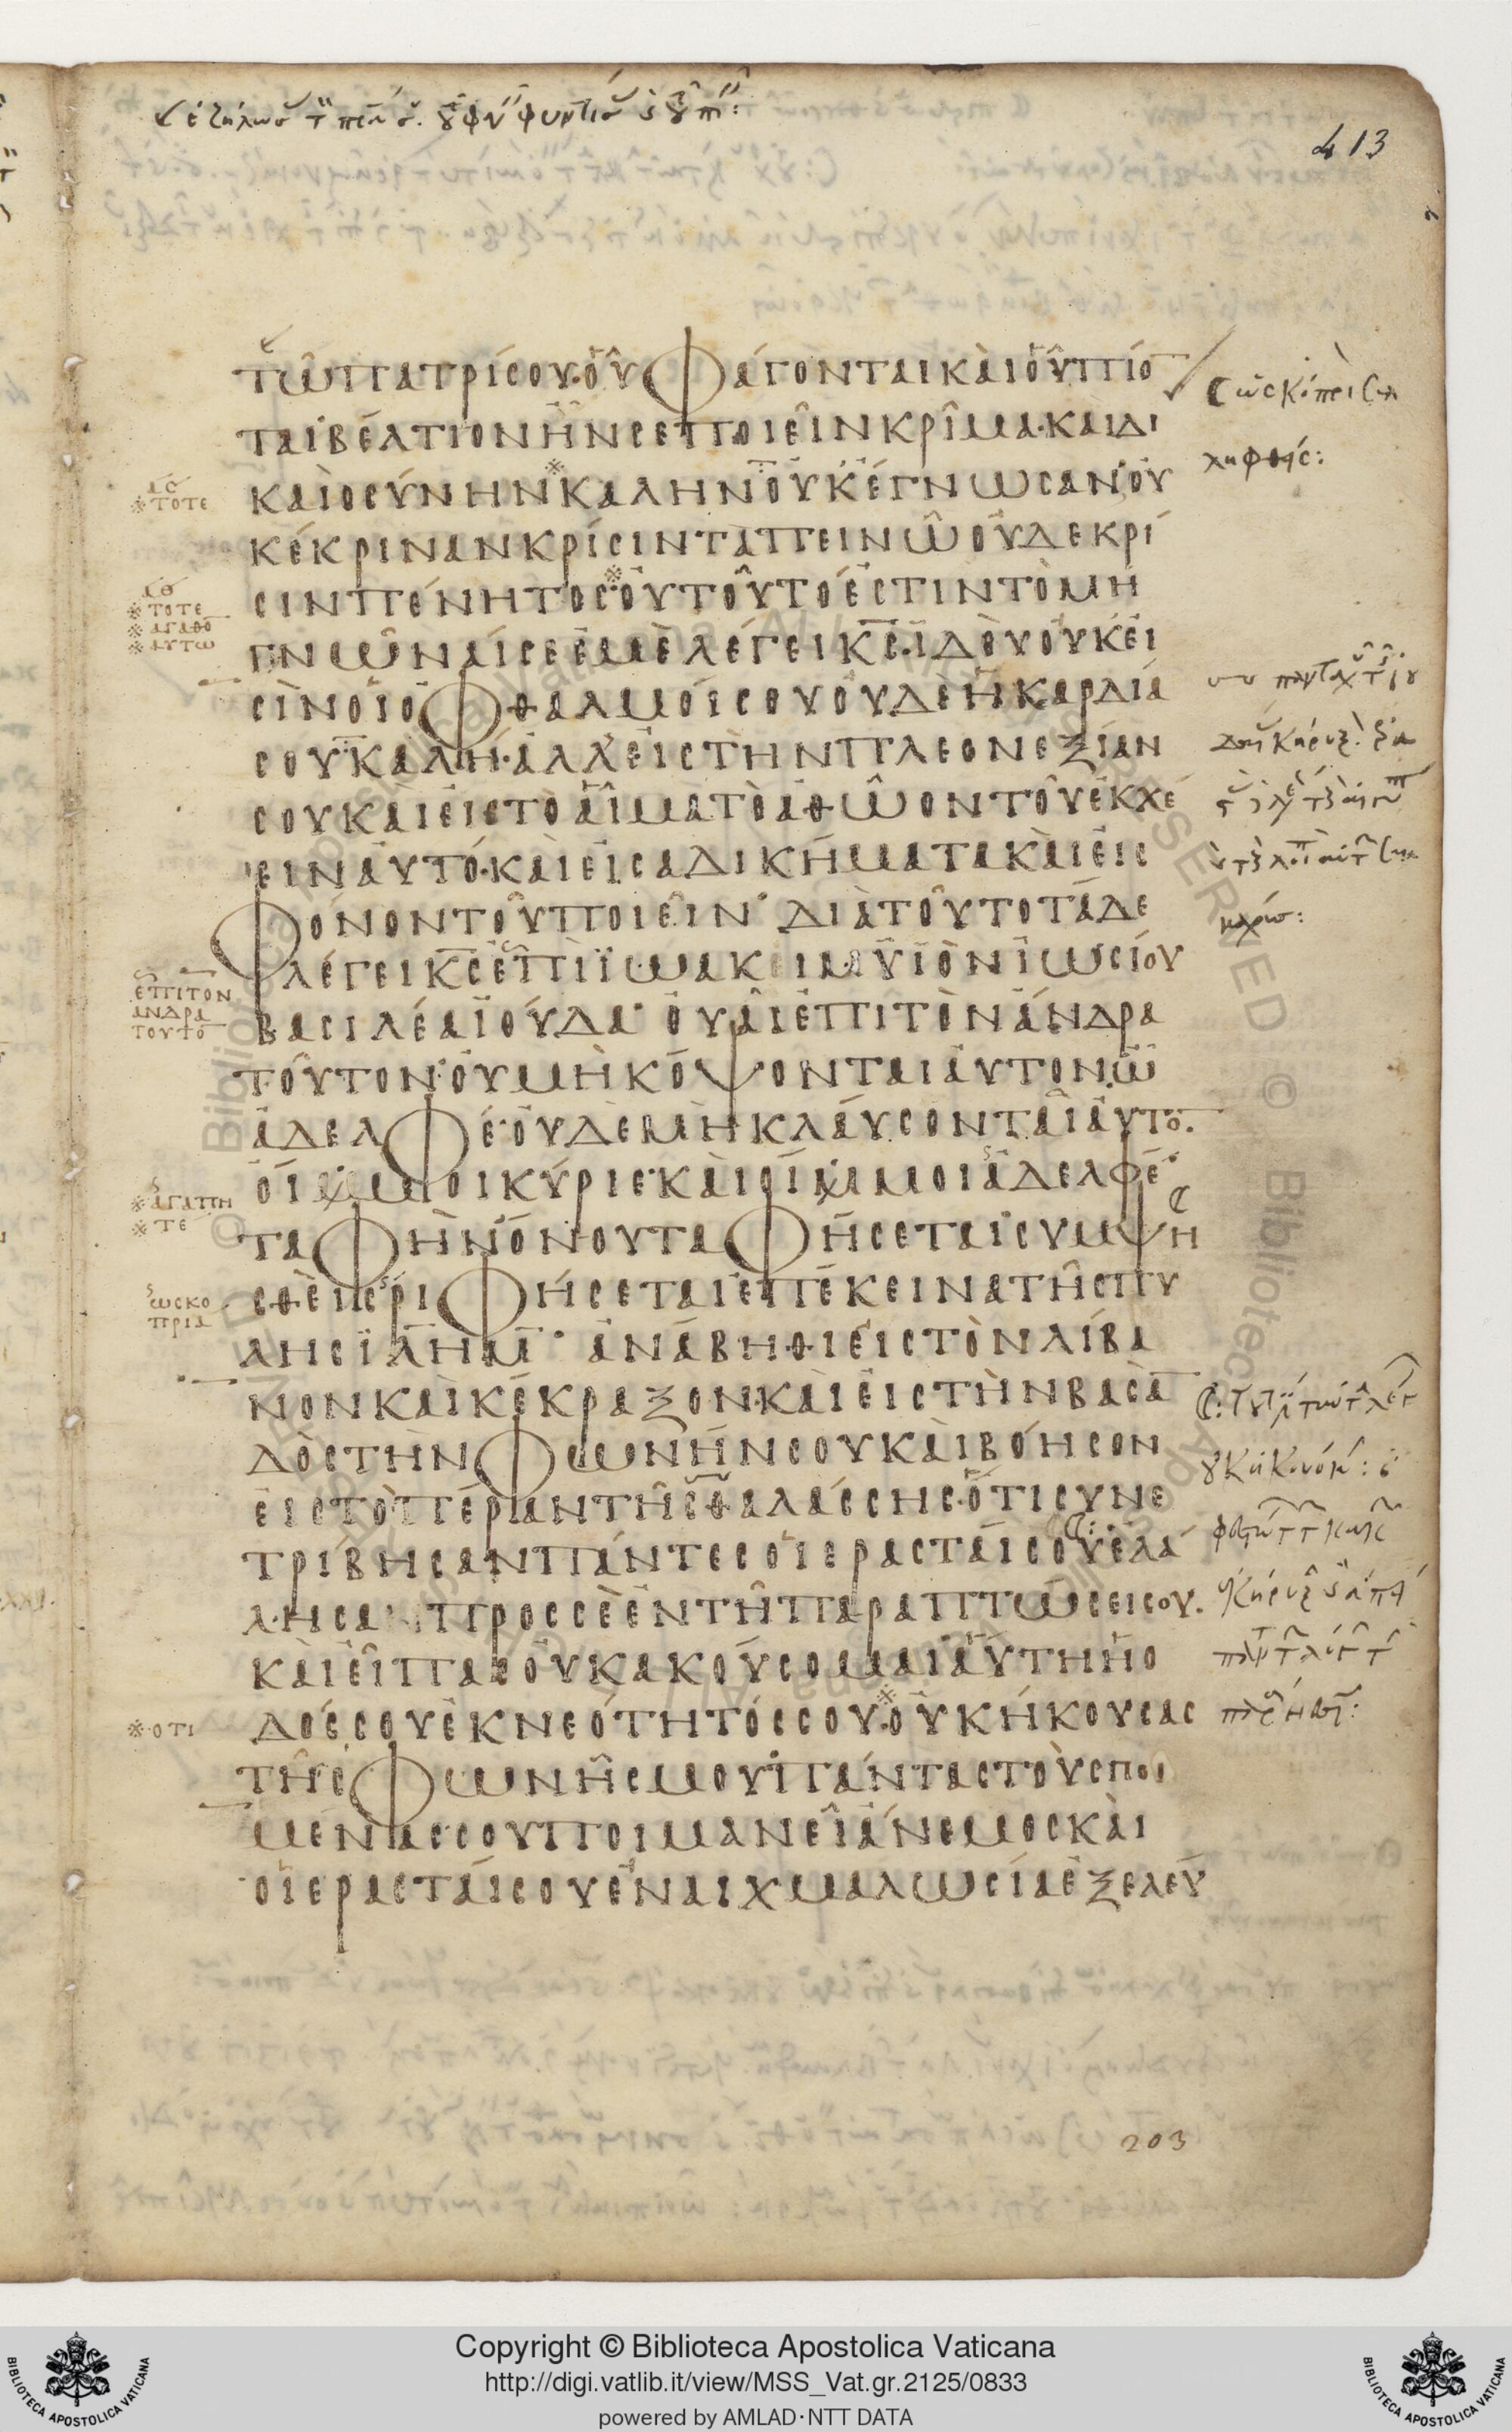 413
ΤΩΠΑΤΡΙΣΟΥ·ΟΥΦΑΓΟΝΤΑΙΚΑΙΟΥΠΙΟ̅
ΤΑΙΒΕΛΤΙΟΝΗΝΣΕΠΟΙΕΙΝΚΡΙΜΑ·ΚΑΙΔΙ
ΚΑΙΟΣΥΝΗΝ※ΚΑΛΗΝΟΥΚΕΓΝΩΣΑΝΟΥ
※ΤΟΤΕ
ΚΕΚΡΙΝΑΝΚΡΙΣΙΝΤΑΠΕΙΝΩΟΥΔΕΚΡΙ
ΣΙΝΠΕΝΗΤΟΣ※ΟΥΤΟΥΤΟΕΣΤΙΝΤΟΜΗ
※ΤΟΤΕ
※ΑΓΑΘΟ̅
※ΑΥΤΩ
ΓΝΩΝΑΙΣΕΕΜΕΛΕΓΕΙΚ̅Σ̅·ΙΔΟΥΟΥΚΕΙ
ΣΙΝΟΙΟΦΘΑΛΜΟΙΣΟΥΟΥΔΕΗΚΑΡΔΙΑ
ΣΟΥΚΑΛΗ·ΑΛΛΕΙΣΤΗΝΠΛΕΟΝΕΞΙΑΝ
ΣΟΥΚΑΙΕΙΣΤΟΑΙΜΑΤΟΑΘΩΟΝΤΟΥΕΚΧΕ
ΕΙΝΑΥΤΟ·ΚΑΙΕΙΣΑΔΙΚΗΜΑΤΑΚΑΙΕΙΣ
ΦΟΝΟΝΤΟΥΠΟΙΕΙΝ· ΔΙΑΤΟΥΤΟΤΑΔΕ
ΛΕΓΕΙΚ̅Σ̅ΕΠΙΪΩΑΚΕΙΜΥΙΟΝΙΩΣΙΟΥ
ΕΠΙΤΟΝ
ΑΝΔΡΑ
ΤΟΥΤΟ̅
ΒΑΣΙΛΕΑΙΟΥΔΑ· ΟΥΑΙΕΠΙΤΟΝΑΝΔΡΑ
ΤΟΥΤΟΝ·ΟΥΜΗΚΟΨΟΝΤΑΙΑΥΤΟΝΩ
ΑΔΕΛΦΕ·ΟΥΔΕΜΗΚΛΑΥΣΟΝΤΑΙΑΥΤΟ̅·
ΟΙΜΜΟΙΚΥΡΙΕ·ΚΑΙΟΙΜΜΟΙΑΔΕΛΦΕ·
※ΑΓΑΠΗ
※ΤΕ
ΤΑΦΗΝΟΝΟΥΤΑΦΗΣΕΤΑΙΣΥΜΨΗ
ΣΘΕΙΣΡΙΦΗΣΕΤΑΙΕΠΕΚΕΙΝΑΤΗΣΠΥ
ΩΣΚΟ
ΠΡΙΑ
ΛΗΣΙ̅Λ̅Η̅Μ̅· ΑΝΑΒΗΘΙΕΙΣΤΟΝΛΙΒΑ
ΝΟΝΚΑΙΚΕΚΡΑΞΟΝ·ΚΑΙΕΙΣΤΗΝΒΑΣΑ̅
ΔΟΣΤΗΝΦΩΝΗΝΣΟΥΚΑΙΒΟΗΣΟΝ
ΕΙΣΤΟΠΕΡΑΝΤΗΣΘΑΛΑΣΣΗΣ·ΟΤΙΣΥΝΕ
ΤΡΙΒΗΣΑΝΠΑΝΤΕΣΟΙΕΡΑΣΤΑΙΣΟΥΕΛΑ
ΛΗΣΑΠΡΟΣΣΕΕΝΤΗΠΑΡΑΠΤΩΣΕΙΣΟΥ·
ΚΑΙΕΙΠΑΣΟΥΚΑΚΟΥΣΟΜΑΙΑΥΤΗΗΟ
ΔΟΣΣΟΥΕΚΝΕΟΤΗΤΟΣΣΟΥ※ΟΥΚΗΚΟΥΣΑΣ
※·ΟΤΙ
ΤΗΣΦΩΝΗΣΜΟΥ·ΠΑΝΤΑΣΤΟΥΣΠΟΙ
ΜΕΝΑΣΣΟΥΠΟΙΜΑΝΕΙΑΝΕΜΟΣΚΑΙ
ΟΙΕΡΑΣΤΑΙΣΟΥΕΝΑΙΧΜΑΛΩΣΙΑΕΞΕΛΕΥ
203
Copyright © Biblioteca Apostolica Vaticana
http://digi.vatlib.it/view/MSS_Vat.gr.2125/0833
powered by AMLAD·NTT DATA